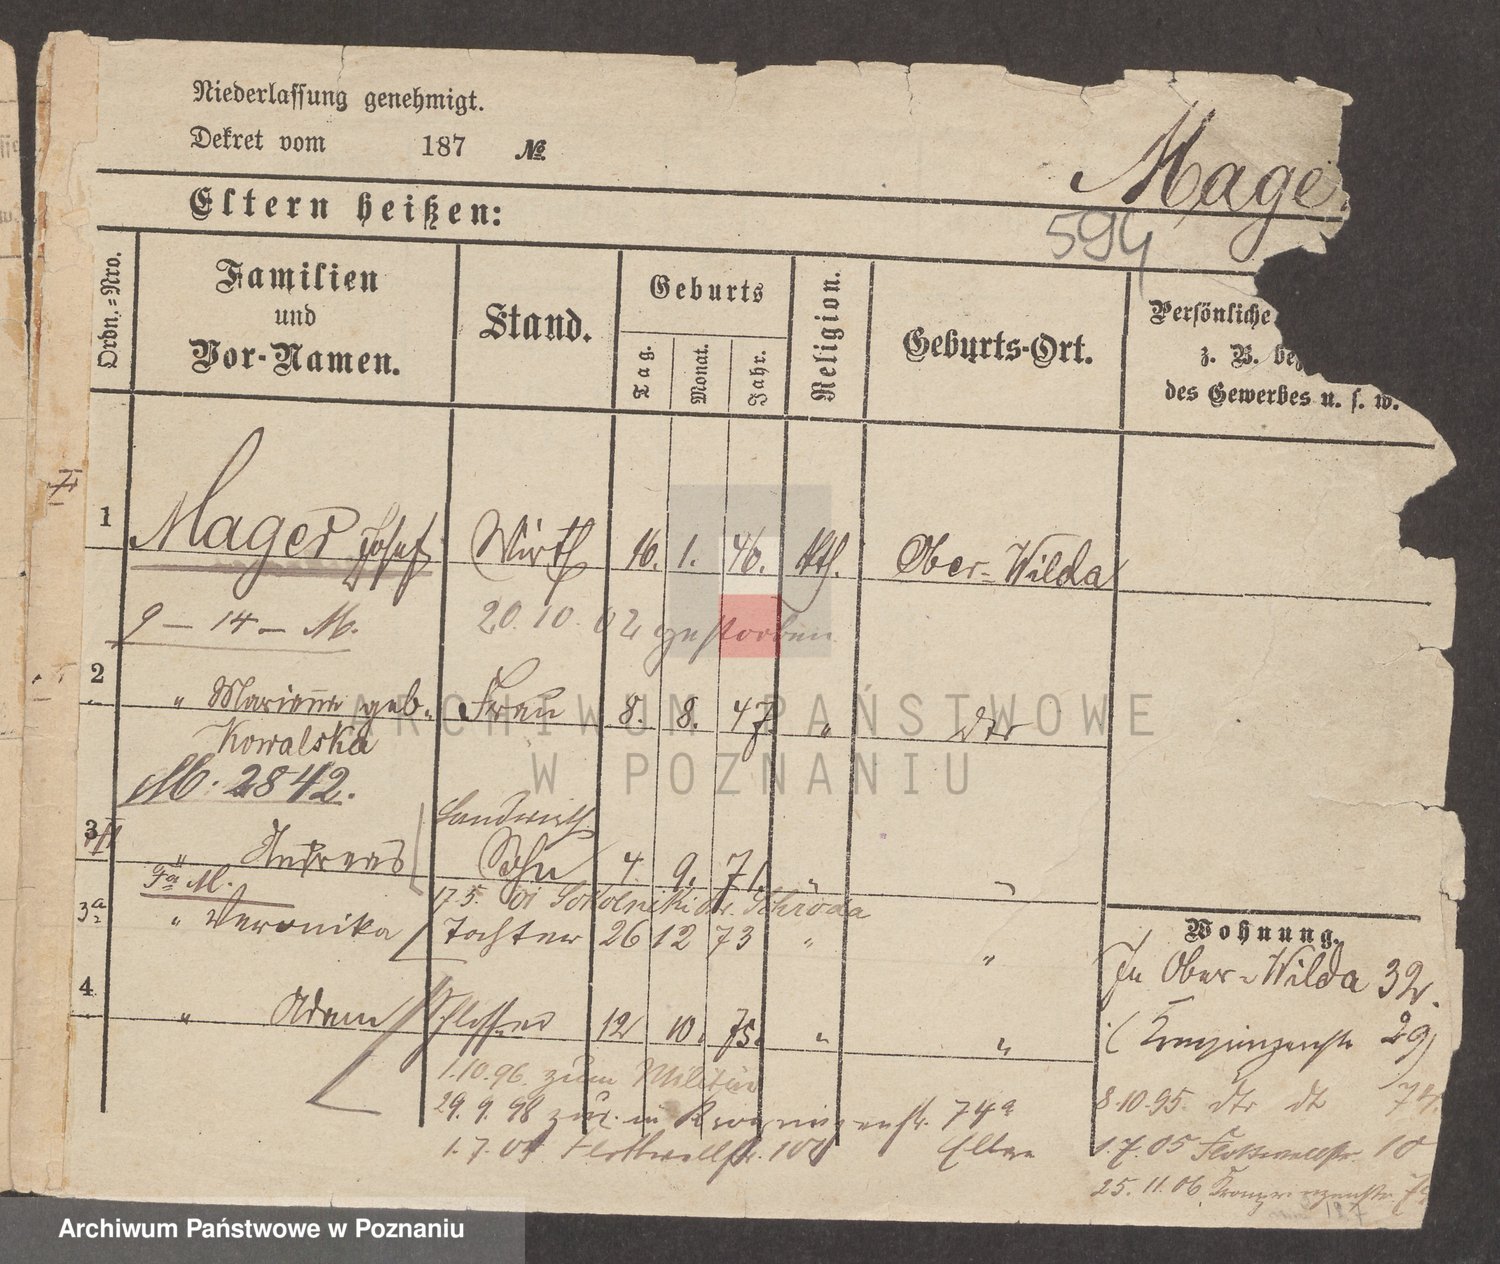 Niederlassung genehmigt.
Dekret vom 187 №
Mager
Eltern heißen:
594
Ordn.=Nro.
Familien
und
Vor-Namen.
Stand.
Geburts
Tag.
Monat.
Jahr.
Religion.
Geburts-Ort.
Persönliche
z. B.
des Gewerbes u. s. w.
1 Mager Josef Wirth 16. 1. 46. kth. Ober-Wilda
9 – 14 – M. 20. 10. 02 gestorben
2 " Marianna geb. Frau 8. 8. 47. " dto
Kowalska
M. 2842.
Landwirth
3 " Andreas Sohn 4. 9. 71. "
17.5. 01 Sokolniki Kr. Schroda
3a " Veronika Tochter 26 12 73 " "
4 " Adam Schlosser 12 10. 75. " "
1.10.96. zum Militär
29. 9. 98 zur. in Kronprinzenstr. 74a
1.7.05 Flottwellstr. 10 Eltern
Wohnung.
In Ober-Wilda 32.
(Kronprinzenstr 29)
8.10.95. dto do 74.
1.7.05 Flottwellstr. 10
25.11.06 Kronprinzenstr.
ARCHIWUM PAŃSTWOWE
W POZNANIU
Archiwum Państwowe w Poznaniu